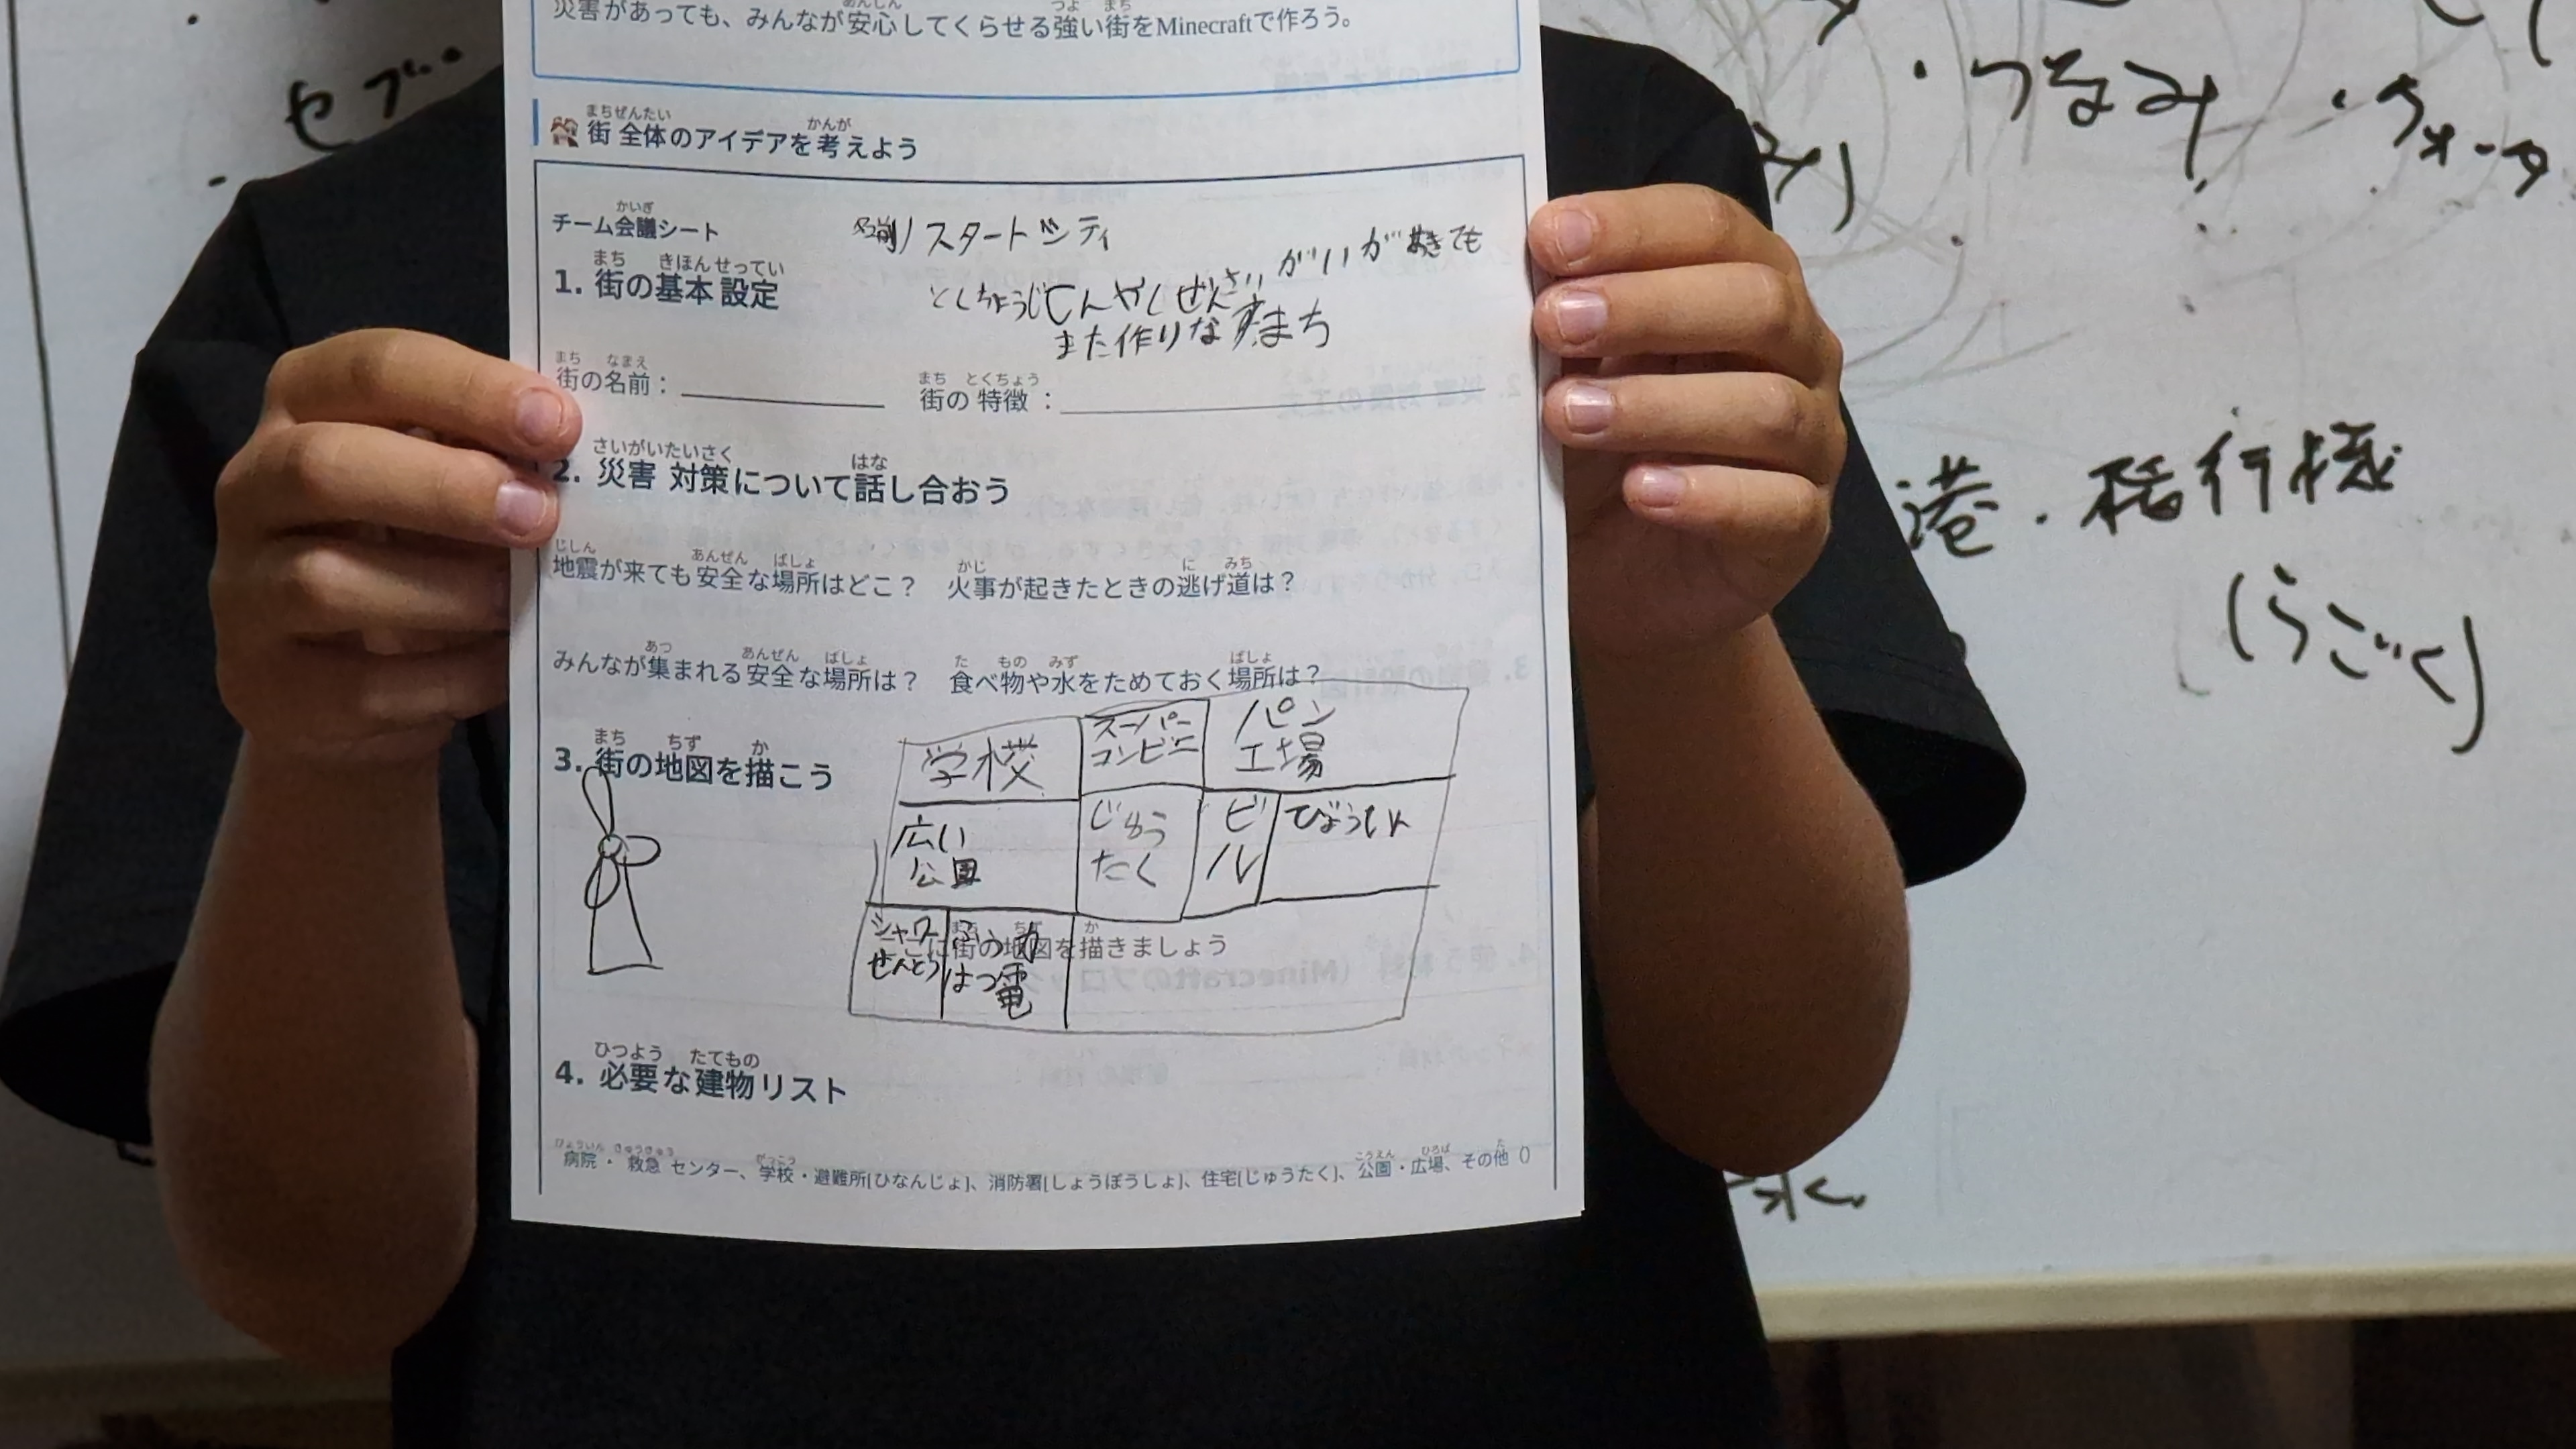 災害があっても、みんなが安心してくらせる強い街をMinecraftで作ろう。
街全体のアイデアを考えよう
チーム会議シート
名前 リスタートシティ
1. 街の基本設定
がいがおきても
また作りなすまち
街の名前：
街の特徴：
2. 災害対策について話し合おう
地震が来ても安全な場所はどこ？ 火事が起きたときの逃げ道は？
みんなが集まれる安全な場所は？ 食べ物や水をためておく場所は？
3. 街の地図を描こう
学校
スーパー
コンビニ
パン
工場
広い
公園
じゅう
たく
ビル
びょういん
シャワー
せんとう
ふう力
はつ電
ここに街の地図を描きましょう
4. 必要な建物リスト
病院・救急センター、学校・避難所[ひなんじょ]、消防署[しょうぼうしょ]、住宅[じゅうたく]、公園・広場、その他 ()
セブ
・つなみ
・ウォータ
港・飛行機
(らごく)
水